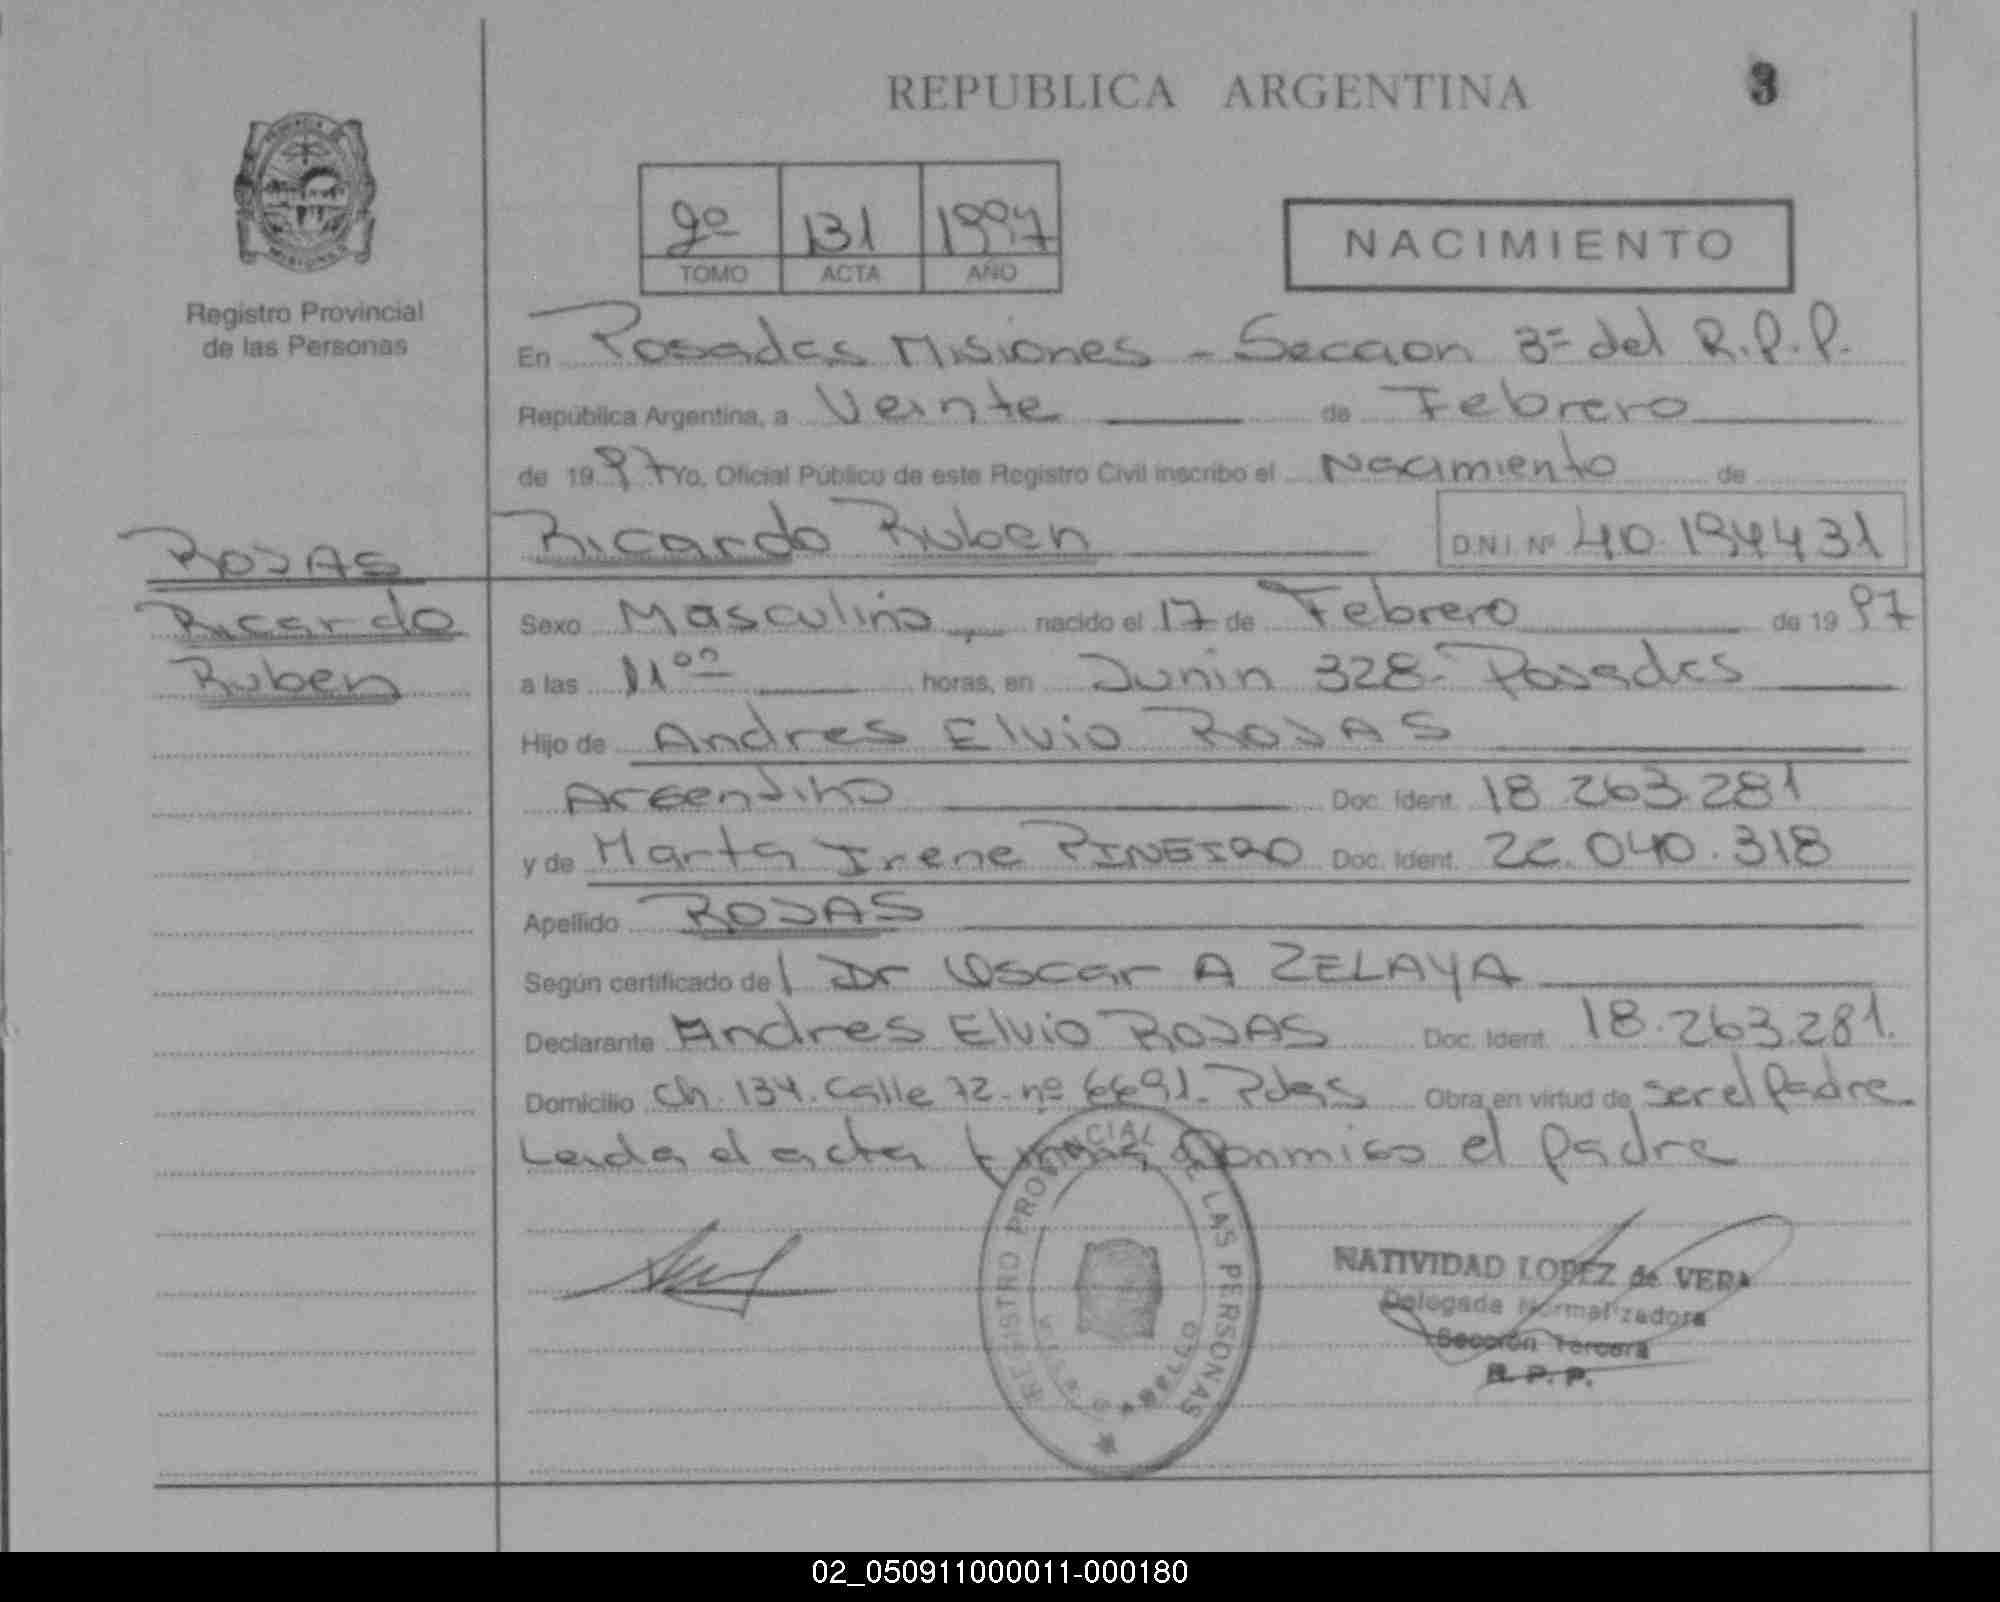 REPUBLICA ARGENTINA
3
2º 131 1997
TOMO ACTA AÑO
NACIMIENTO
Registro Provincial
de las Personas
En Posadas Misiones - Seccion 3ª del R.P.P.
República Argentina, a Veinte de Febrero
de 1997 Yo, Oficial Público de este Registro Civil inscribo el Nacimiento de
Ricardo Ruben D.N.I. Nº 40.194431
ROJAS
Ricardo
Ruben
Sexo Masculino, nacido el 17 de Febrero de 1997
a las 11⁰⁰ horas, en Junin 328- Posadas
Hijo de Andres Elvio ROJAS
Argentino Doc. Ident. 18.263.281
y de Marta Irene PINEIRO Doc. Ident. 22.040.318
Apellido ROJAS
Según certificado de Dr Oscar A ZELAYA
Declarante Andres Elvio ROJAS Doc. Ident. 18.263.281.
Domicilio Ch. 134. Calle 72-nº 6691. Pdas Obra en virtud de ser el padre.
Leida el acta firma Conmigo el padre
REGISTRO PROVINCIAL DE LAS PERSONAS
NATIVIDAD LOPEZ de VERA
Delegada Normalizadora
Sección Tercera
R. P. P.
02_050911000011-000180